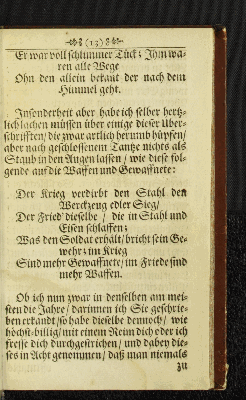 (13)
Er war voll schlimmer Tück; Ihm wa-
ren alle Wege
Ohn den allein bekant der nach dem
Himmel geht.
Insonderheit aber habe ich selber hertz-
lich lachen müssen über einige dieser Uber-
schrifften/ die zwar artlich herumb hüpfen/
aber nach geschlossenem Tantze nichts als
Staub in den Augen lassen/ wie diese fol-
gende auf die Waffen und Gewaffnete:
Der Krieg verdirbt den Stahl den
Werckzeug edler Sieg/
Der Fried dieselbe/ die in Stahl und
Eisen schlaffen;
Was den Soldat erhält/ bricht sein Ge-
wehr; im Krieg
Sind mehr Gewaffnete/ im Friede sind
mehr Waffen.
Ob ich nun zwar in denselben am mei-
sten die Jahre/ darinnen ich Sie geschrie-
ben erkandt/ so habe dieselbe dennoch/ wie
höchst-billig/ mit einem Reim dich oder ich
fresse dich durchgestrichen/ und dabey die-
ses in Acht genommen/ daß man niemals
zu